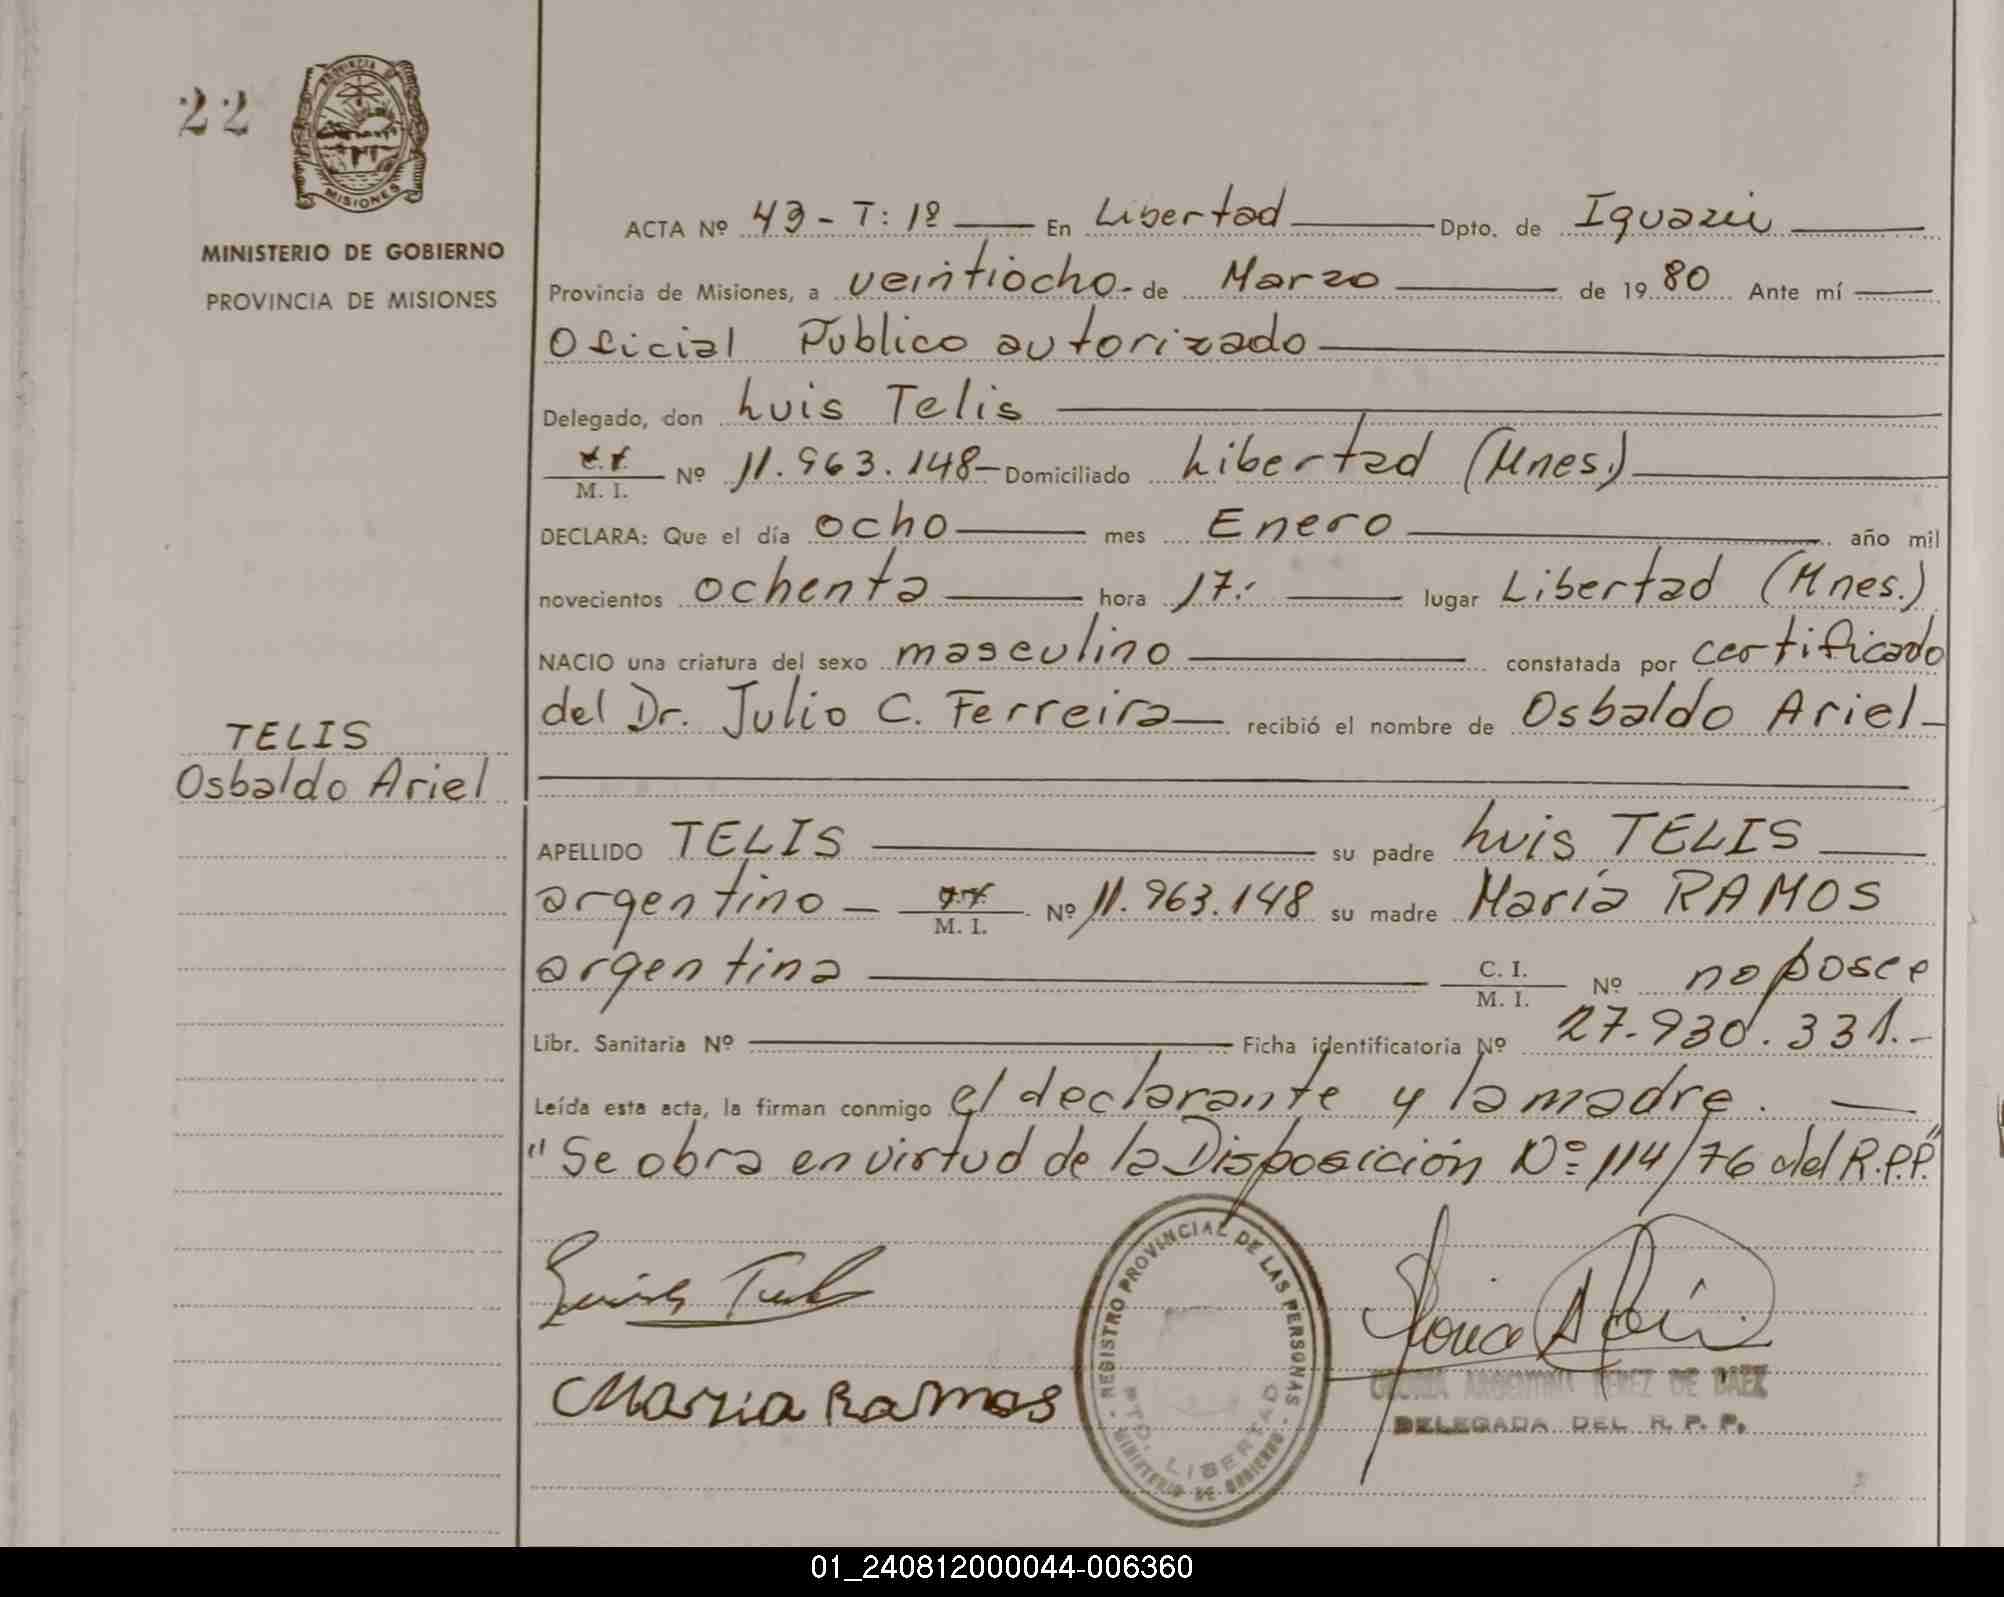 22
PROVINCIA DE
MISIONES
MINISTERIO DE GOBIERNO
PROVINCIA DE MISIONES
ACTA Nº 43 - T: 1º En Libertad Dpto. de Iguazú
Provincia de Misiones, a veintiocho - de Marzo de 1980 Ante mí
Oficial Público autorizado
Delegado, don Luis Telis
M. I. Nº 11.963.148 - Domiciliado Libertad (Mnes.)
DECLARA: Que el día ocho mes Enero año mil
novecientos ochenta hora 17.- lugar Libertad (Mnes.)
NACIO una criatura del sexo masculino constatada por certificado
del Dr. Julio C. Ferreira recibió el nombre de Osbaldo Ariel -
TELIS
Osbaldo Ariel
APELLIDO TELIS su padre Luis TELIS
argentino - M. I. Nº 11.963.148 su madre María RAMOS
argentina C. I. M. I. Nº no posee
Libr. Sanitaria Nº Ficha identificatoria Nº 27.930.331.-
Leída esta acta, la firman conmigo el declarante y la madre. -
"Se obra en virtud de la Disposición Nº 114/76 del R.P.P."
REGISTRO PROVINCIAL DE LAS PERSONAS
MINISTERIO DE GOBIERNO
PTO. LIBERTAD
Maria Ramos
GLORIA ARGENTINA PEREZ DE BAEZ
DELEGADA DEL R. P. P.
01_240812000044-006360